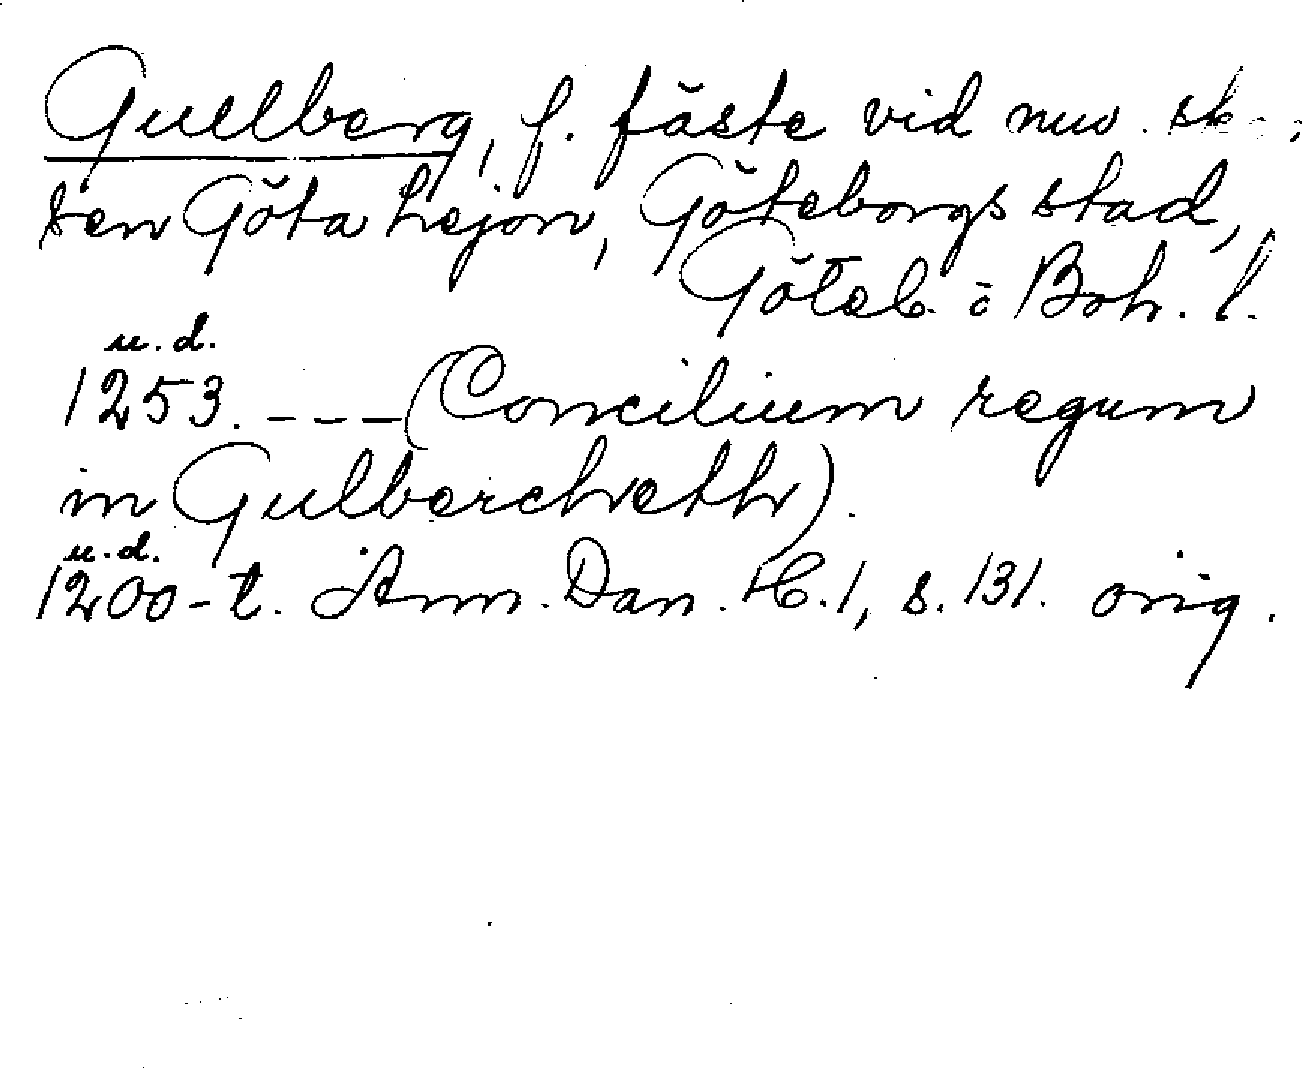 Gullberg, f. fäste vid nuv. sk
sen Göta Lejon, Göteborgs stad,
Göteb. o Boh. l.
u. d.
1253. --- (Concilium regum
in Gulberchveth).
u. d.
1200-t. Ann. Dan. H. 1, s. 131. orig.